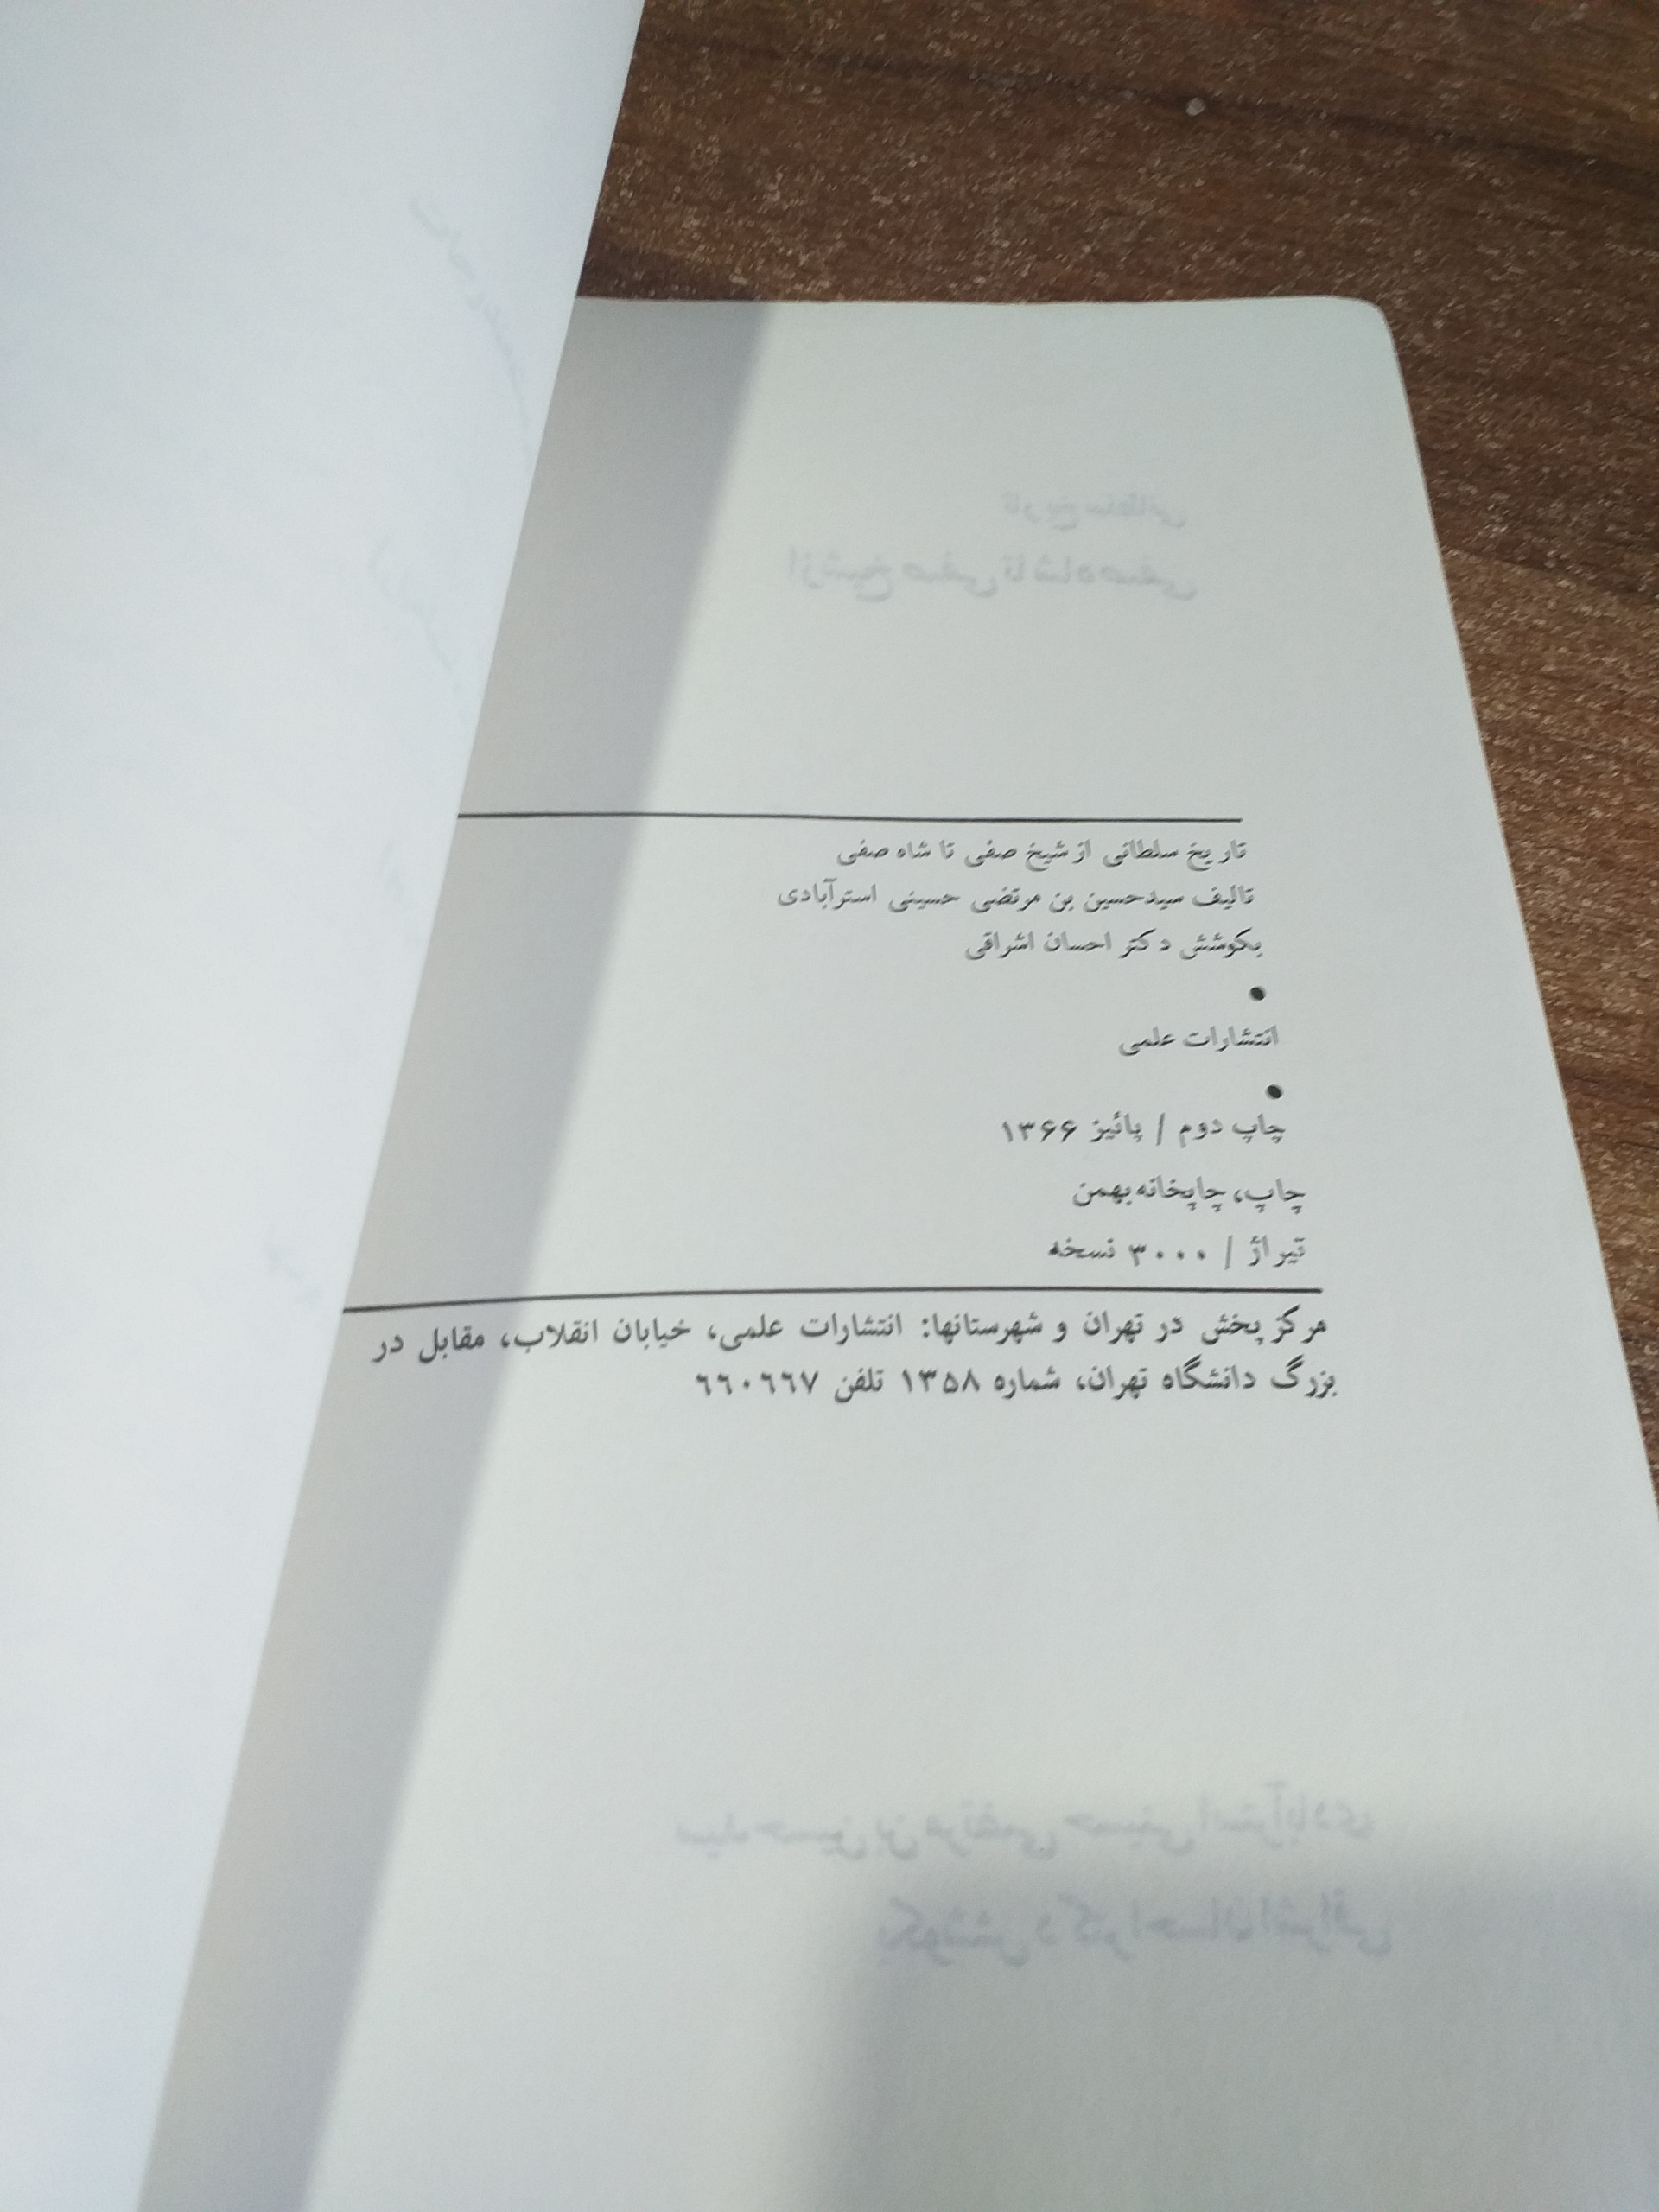 تاریخ سلطانی از شیخ صفی تا شاه صفی
تالیف سیدحسین بن مرتضی حسینی استرآبادی
بکوشش دکتر احسان اشراقی
•
انتشارات علمی
•
چاپ دوم / پائیز ۱۳۶۶
چاپ، چاپخانه بهمن
تیراژ / ۳۰۰۰ نسخه
مرکز پخش در تهران و شهرستانها: انتشارات علمی، خیابان انقلاب، مقابل در
بزرگ دانشگاه تهران، شماره ۱۳۵۸ تلفن ٦٦٠٦٦٧